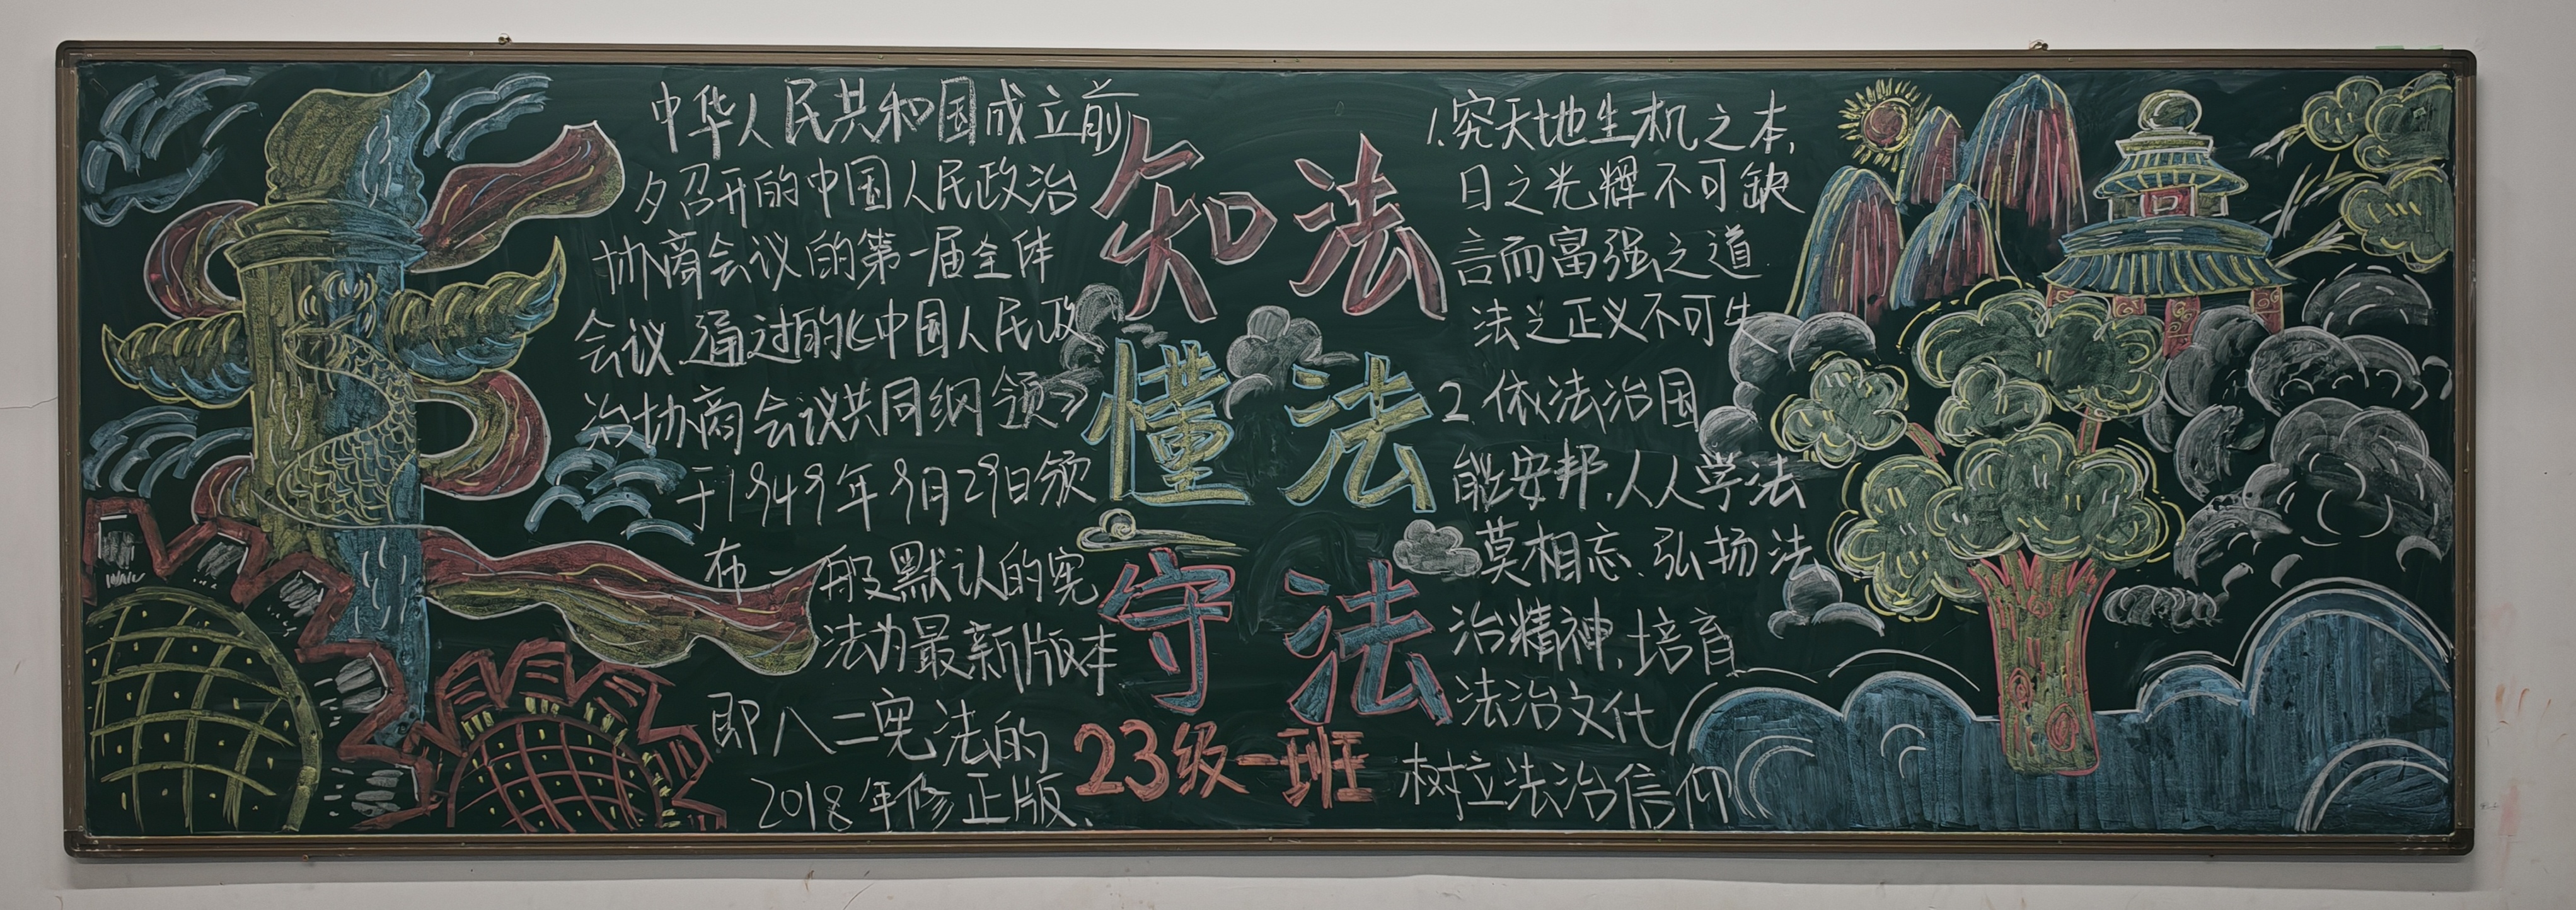 中华人民共和国成立前
夕召开的中国人民政治
协商会议的第一届全体
会议通过的《中国人民政
治协商会议共同纲领》
于1949年9月29日颁
布一般默认的宪
法为最新版本
即八二宪法的
2018年修正版、
知法
懂法
守法
23级一班
1.究天地生机之本,
日之光辉不可缺
言而富强之道.
法之正义不可失
2.依法治国
能安邦,人人学法
莫相忘、弘扬法
治精神,培育
法治文化
树立法治信仰